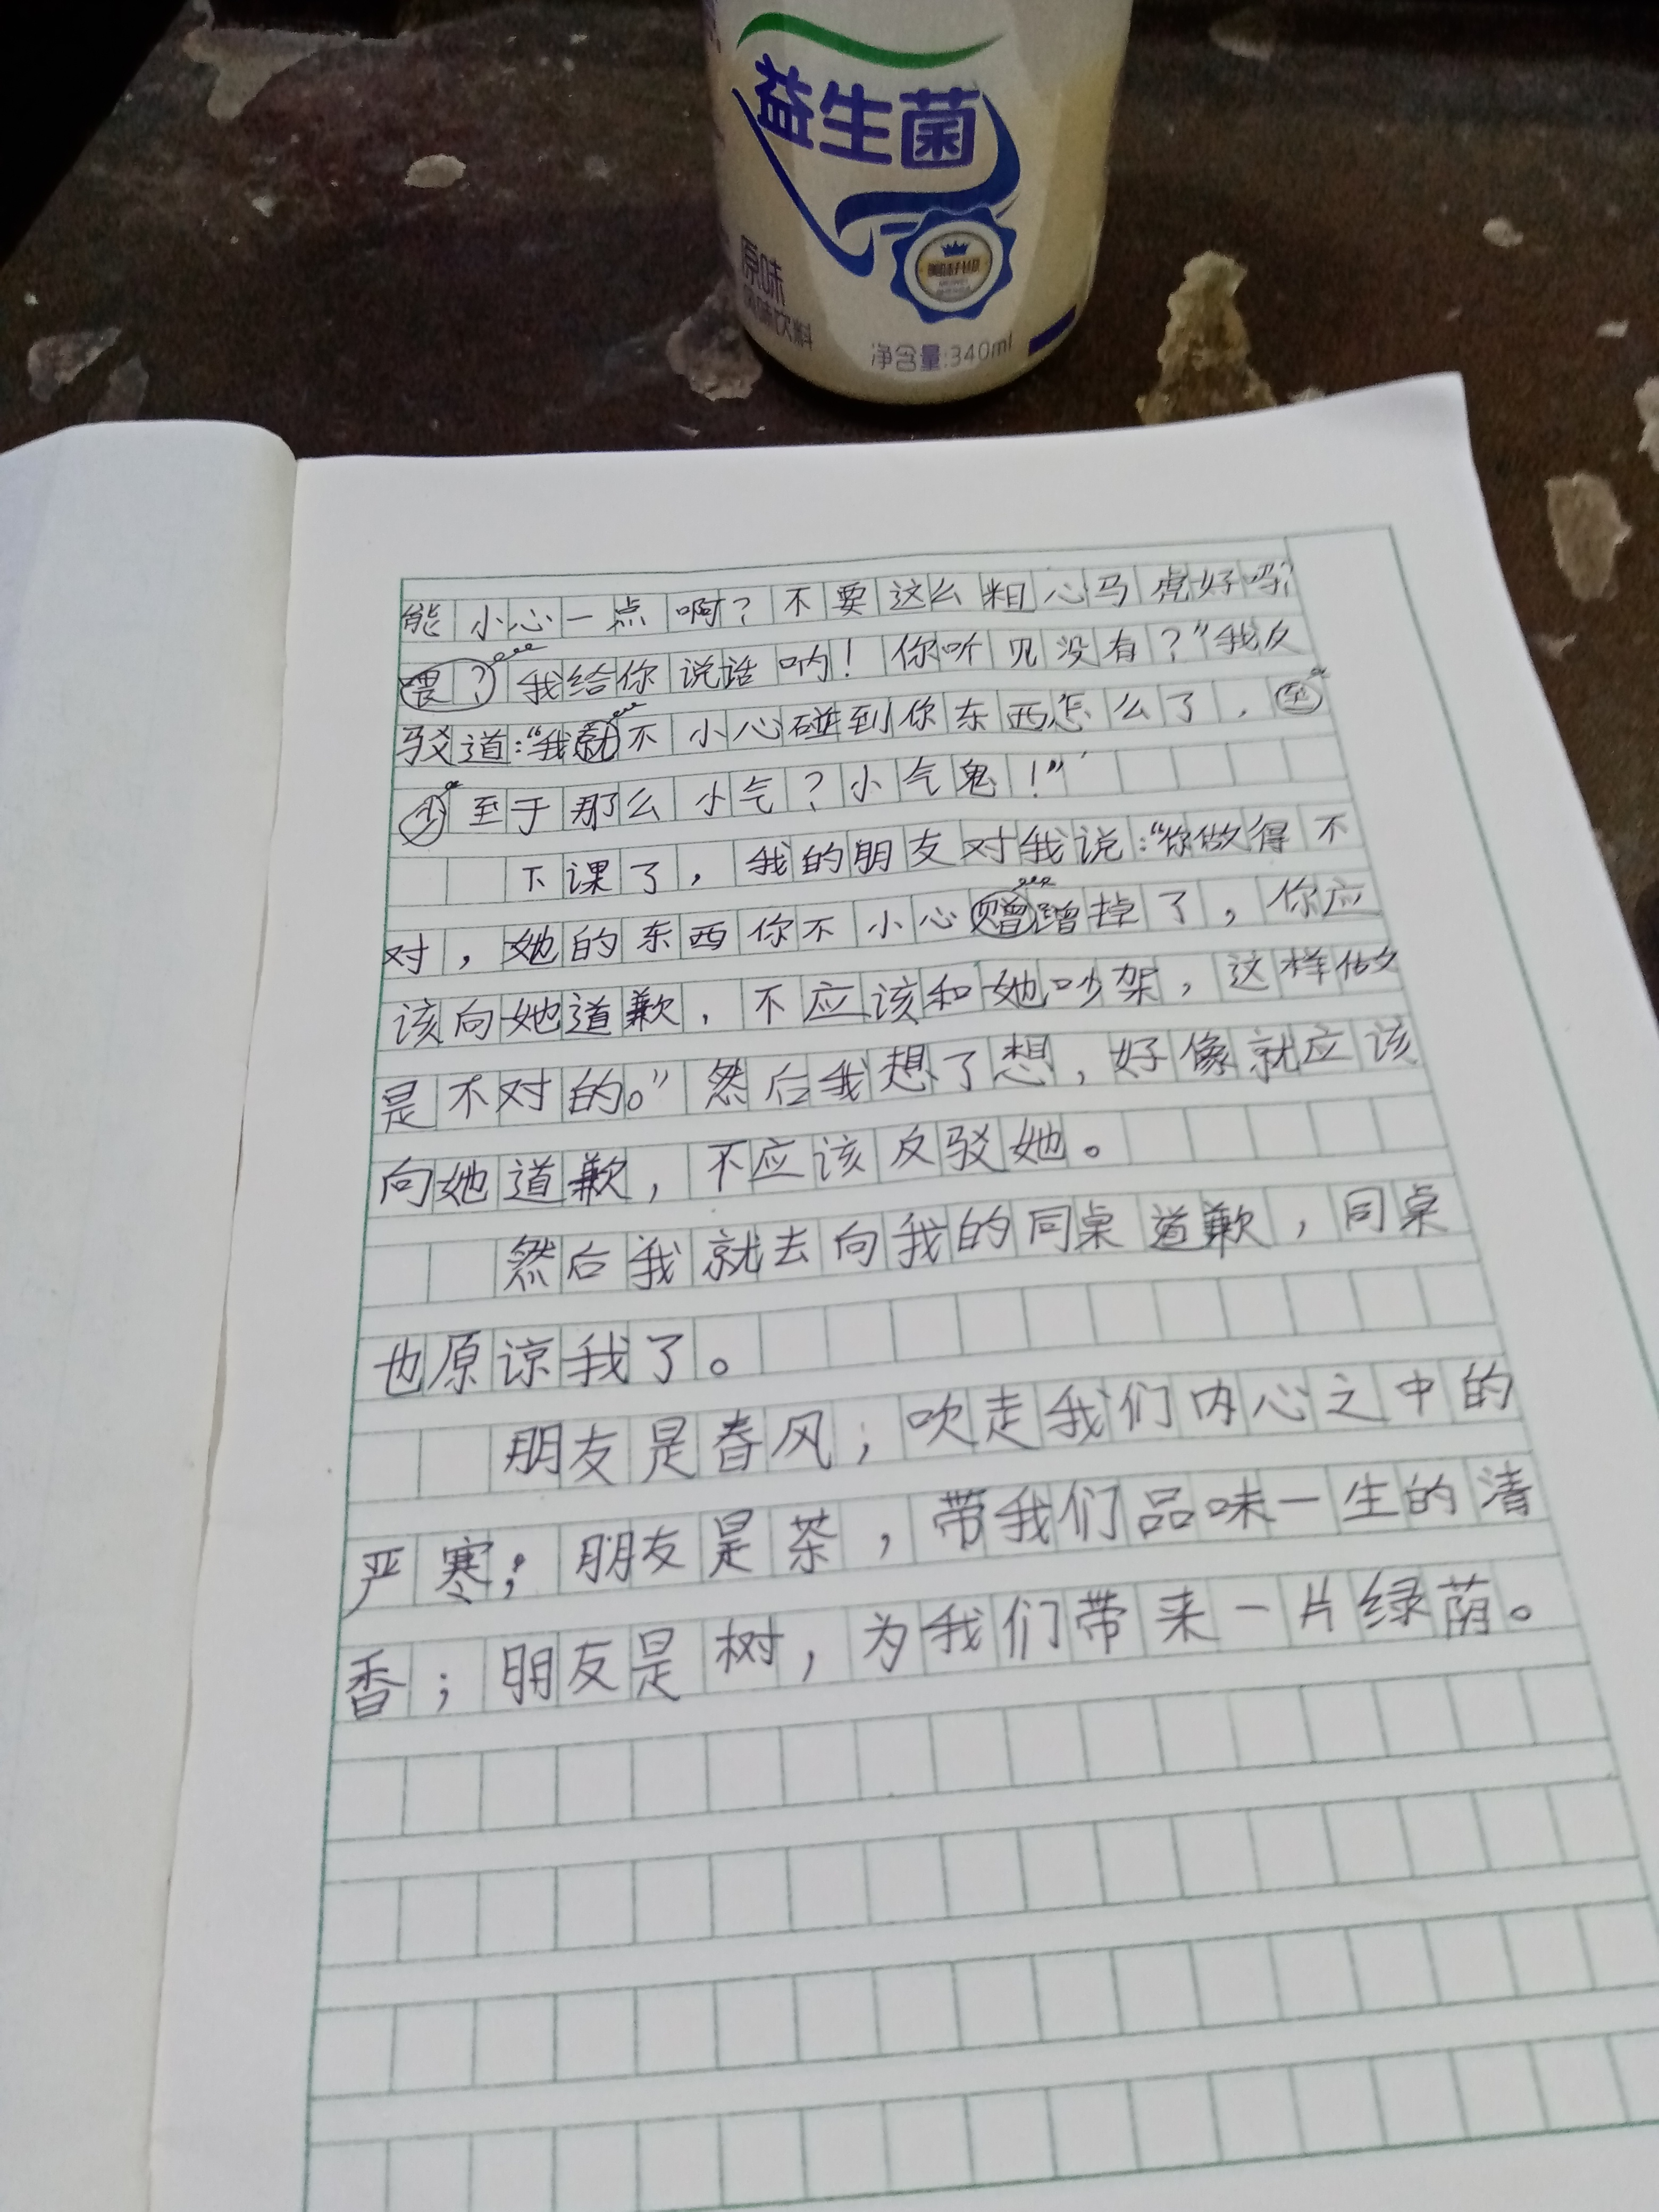 益生菌
原味
风味饮料
净含量:340ml
能小心一点啊？不要这么粗心马虎好吗？
喂？我给你说话呐！你听见没有？”我反
驳道：“我就不小心碰到你东西怎么了，至
至于那么小气？小气鬼！”
下课了，我的朋友对我说：“你做得不
对，她的东西你不小心赠蹭掉了，你应
该向她道歉，不应该和她吵架，这样做
是不对的。”然后我想了想，好像就应该
向她道歉，不应该反驳她。
然后我就去向我的同桌道歉，同桌
也原谅我了。
朋友是春风；吹走我们内心之中的
严寒；朋友是茶，带我们品味一生的清
香；朋友是树，为我们带来一片绿荫。